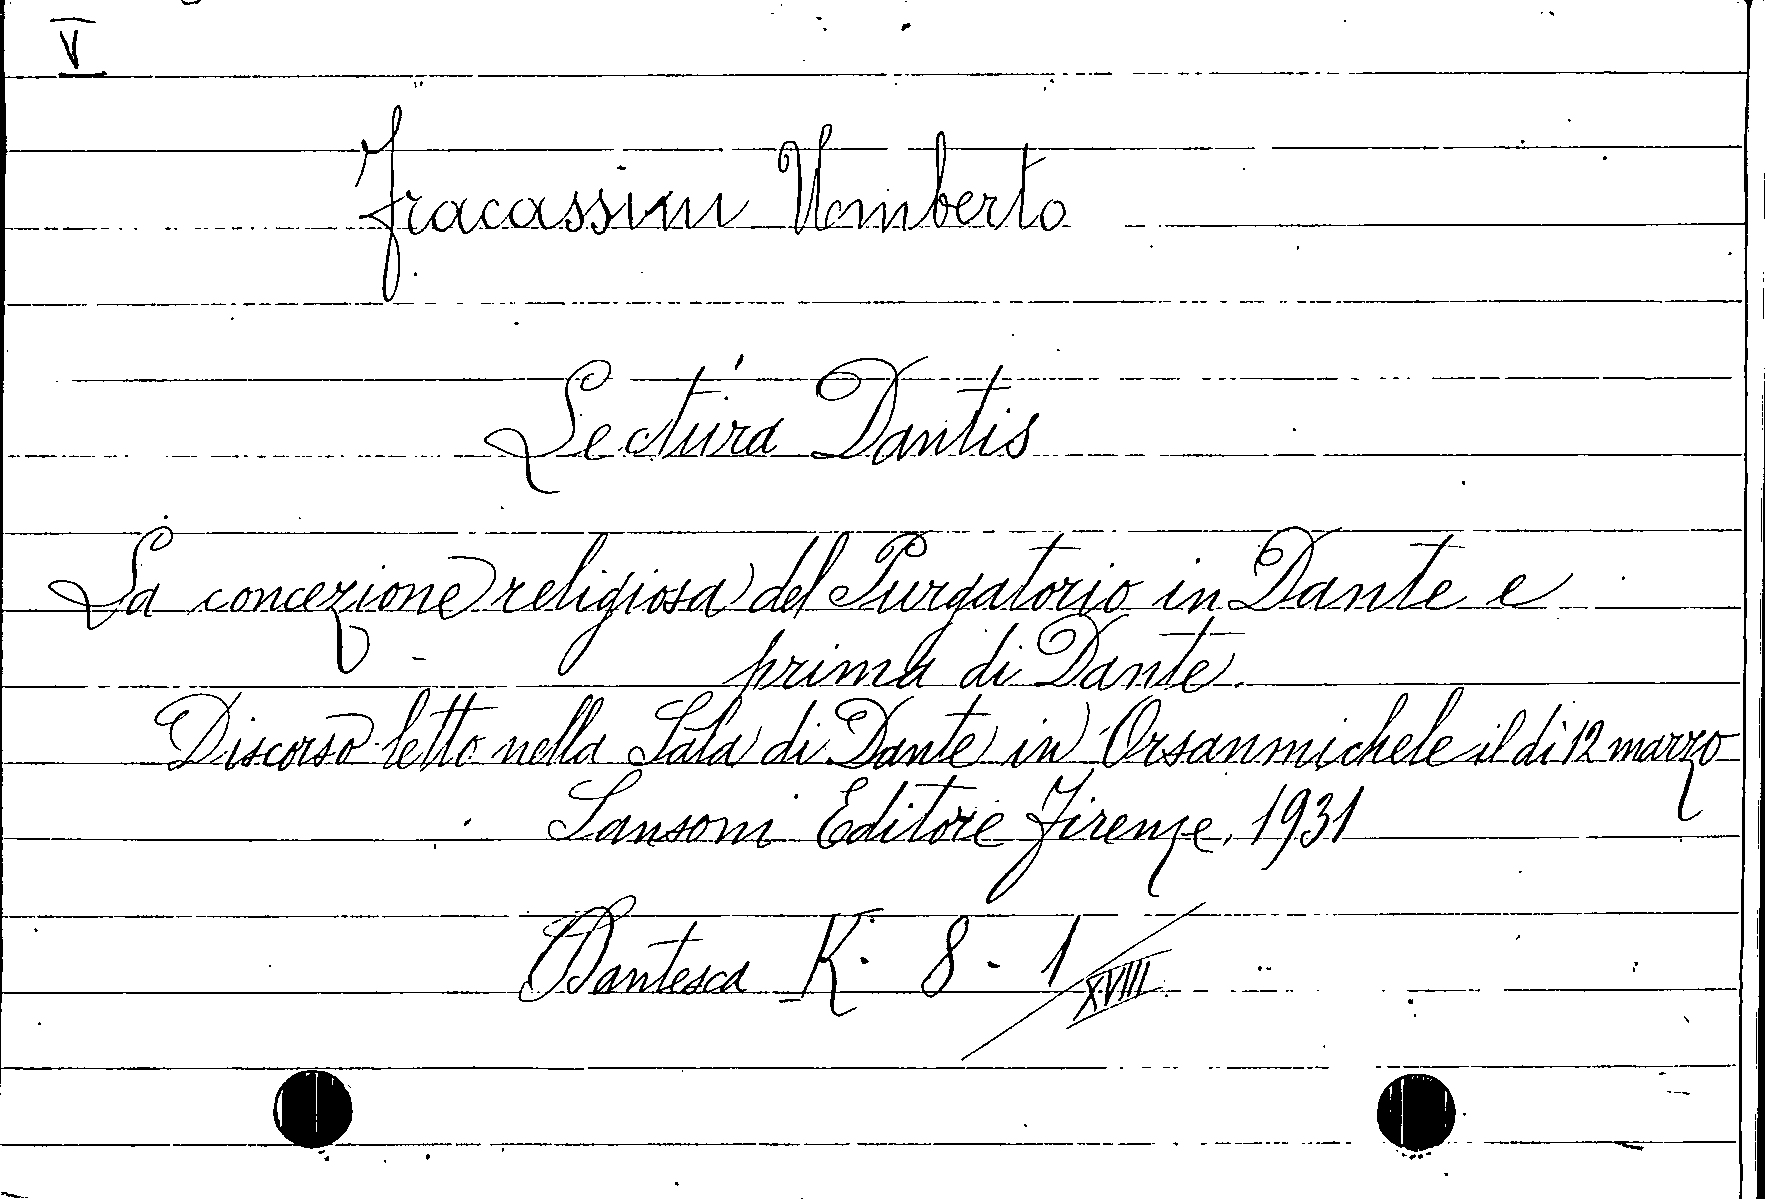 V
Fracassini Umberto
Lectura Dantis
La concezione religiosa del Purgatorio in Dante e
prima di Dante.
Discorso letto nella Sala di Dante in Orsanmichele il dì 12 marzo
Sansoni Editore Firenze, 1931
Dantesca K. 8 - 1/XVIII